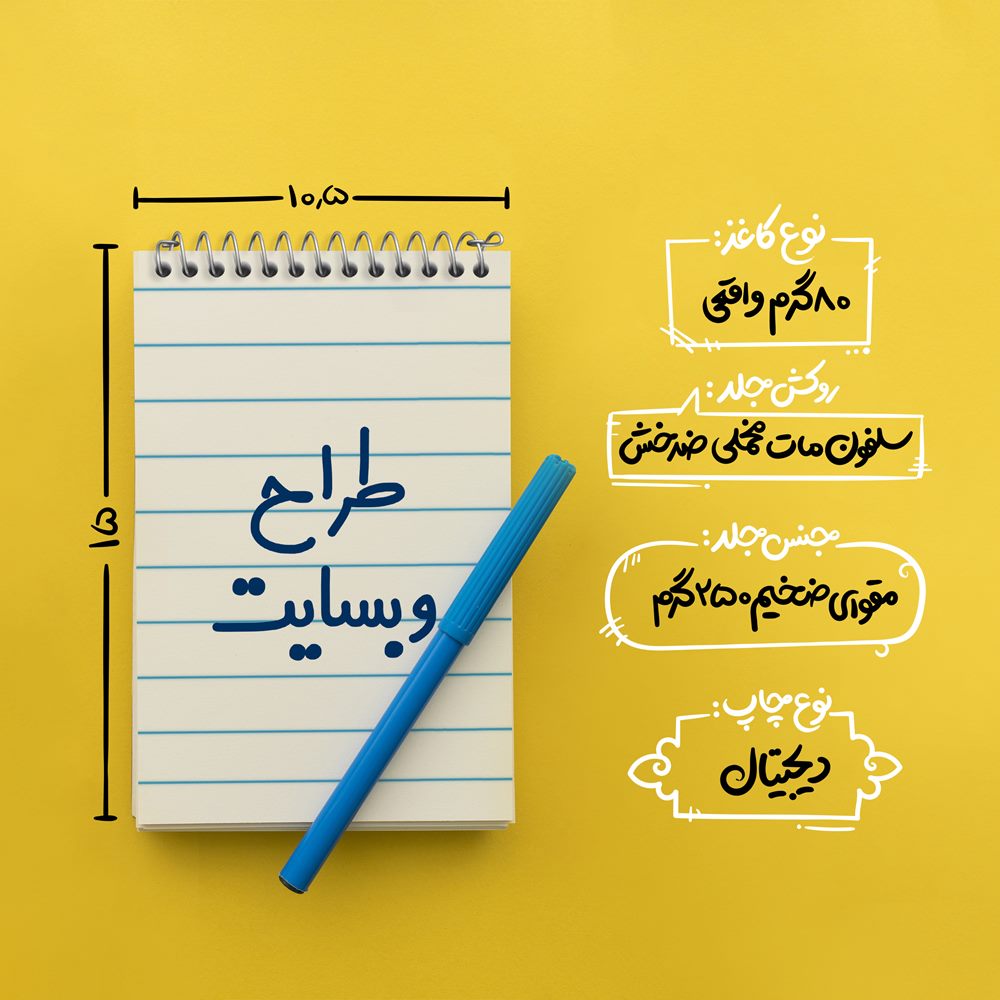 ۱۰٫۵
۱۵
طراح
وبسایت
نوع کاغذ:
۸۰گرم واقعی
روکش جلد:
سلفون مات مخملی ضدخش
جنس جلد:
مقوای ضخیم ۲۵۰گرم
نوع چاپ:
دیجیتال